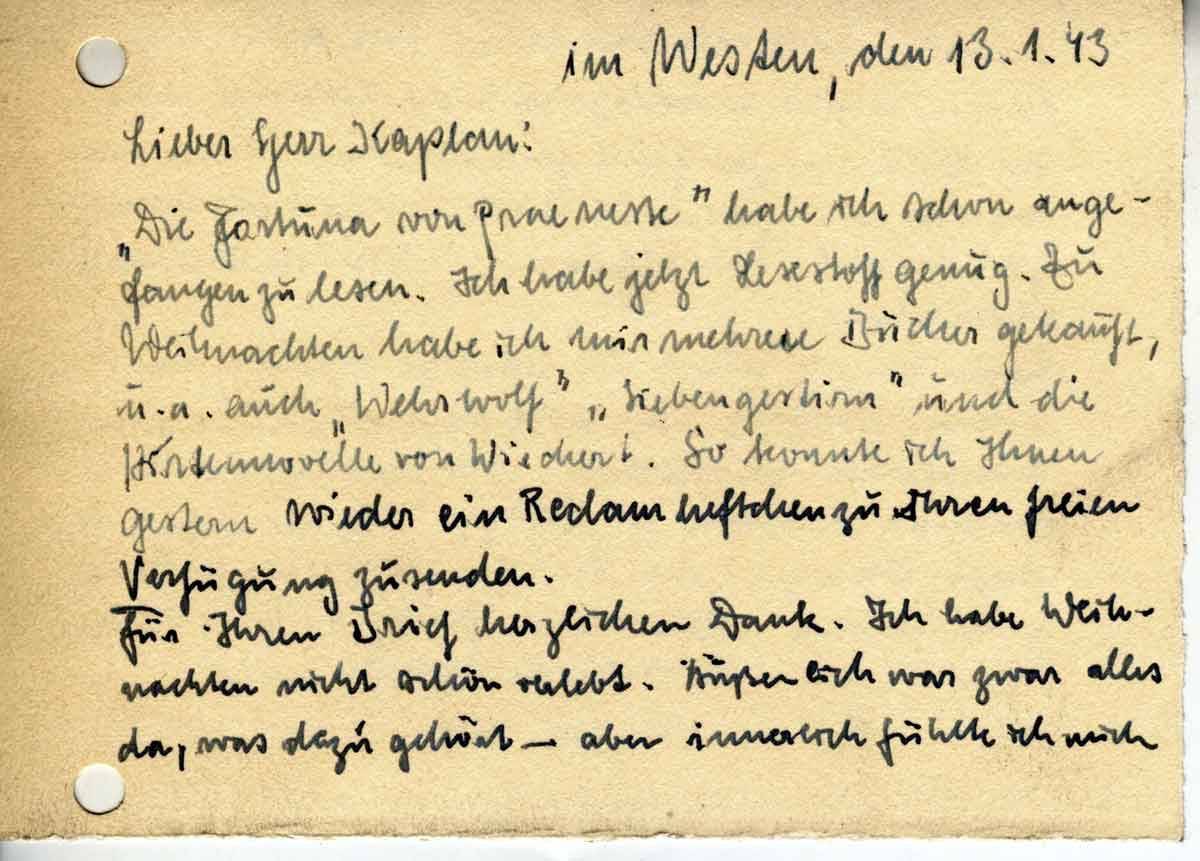 im Westen, den 13.1.43
Lieber Herr Kaplan!
„Die Fortuna von Praeneste" habe ich schon ange-
fangen zu lesen. Ich habe jetzt Lesestoff genug. Zu
Weihnachten habe ich mir mehrere Bücher gekauft,
u.a. auch „Wehrwolf" „Siebengestirn" und die
Hirtennovelle von Wiechert. So konnte ich Ihnen
gestern wieder ein Reclamheftchen zu Ihren freien
Verfügung zusenden.
Für Ihren Brief herzlichen Dank. Ich habe Weih-
nachten nicht schön verlebt. Äußerlich war zwar alles
da, was dazu gehört – aber innerlich fühlte ich mich